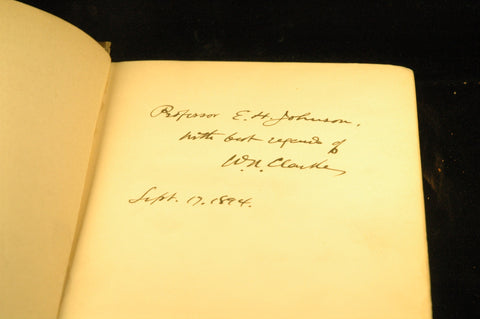 Professor E. H. Johnson,
with best regards of
W. H. Clarke,
Sept. 17. 1894.